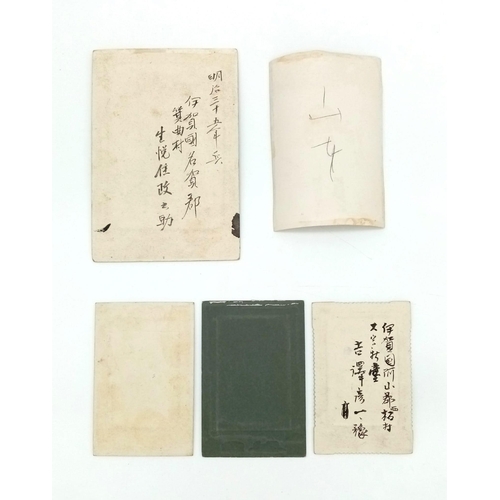 明治三十五年兵
伊賀國名賀郡
箕曲村
生悦住政之助
山本
伊賀国阿山郡西柘村
吉澤彦一